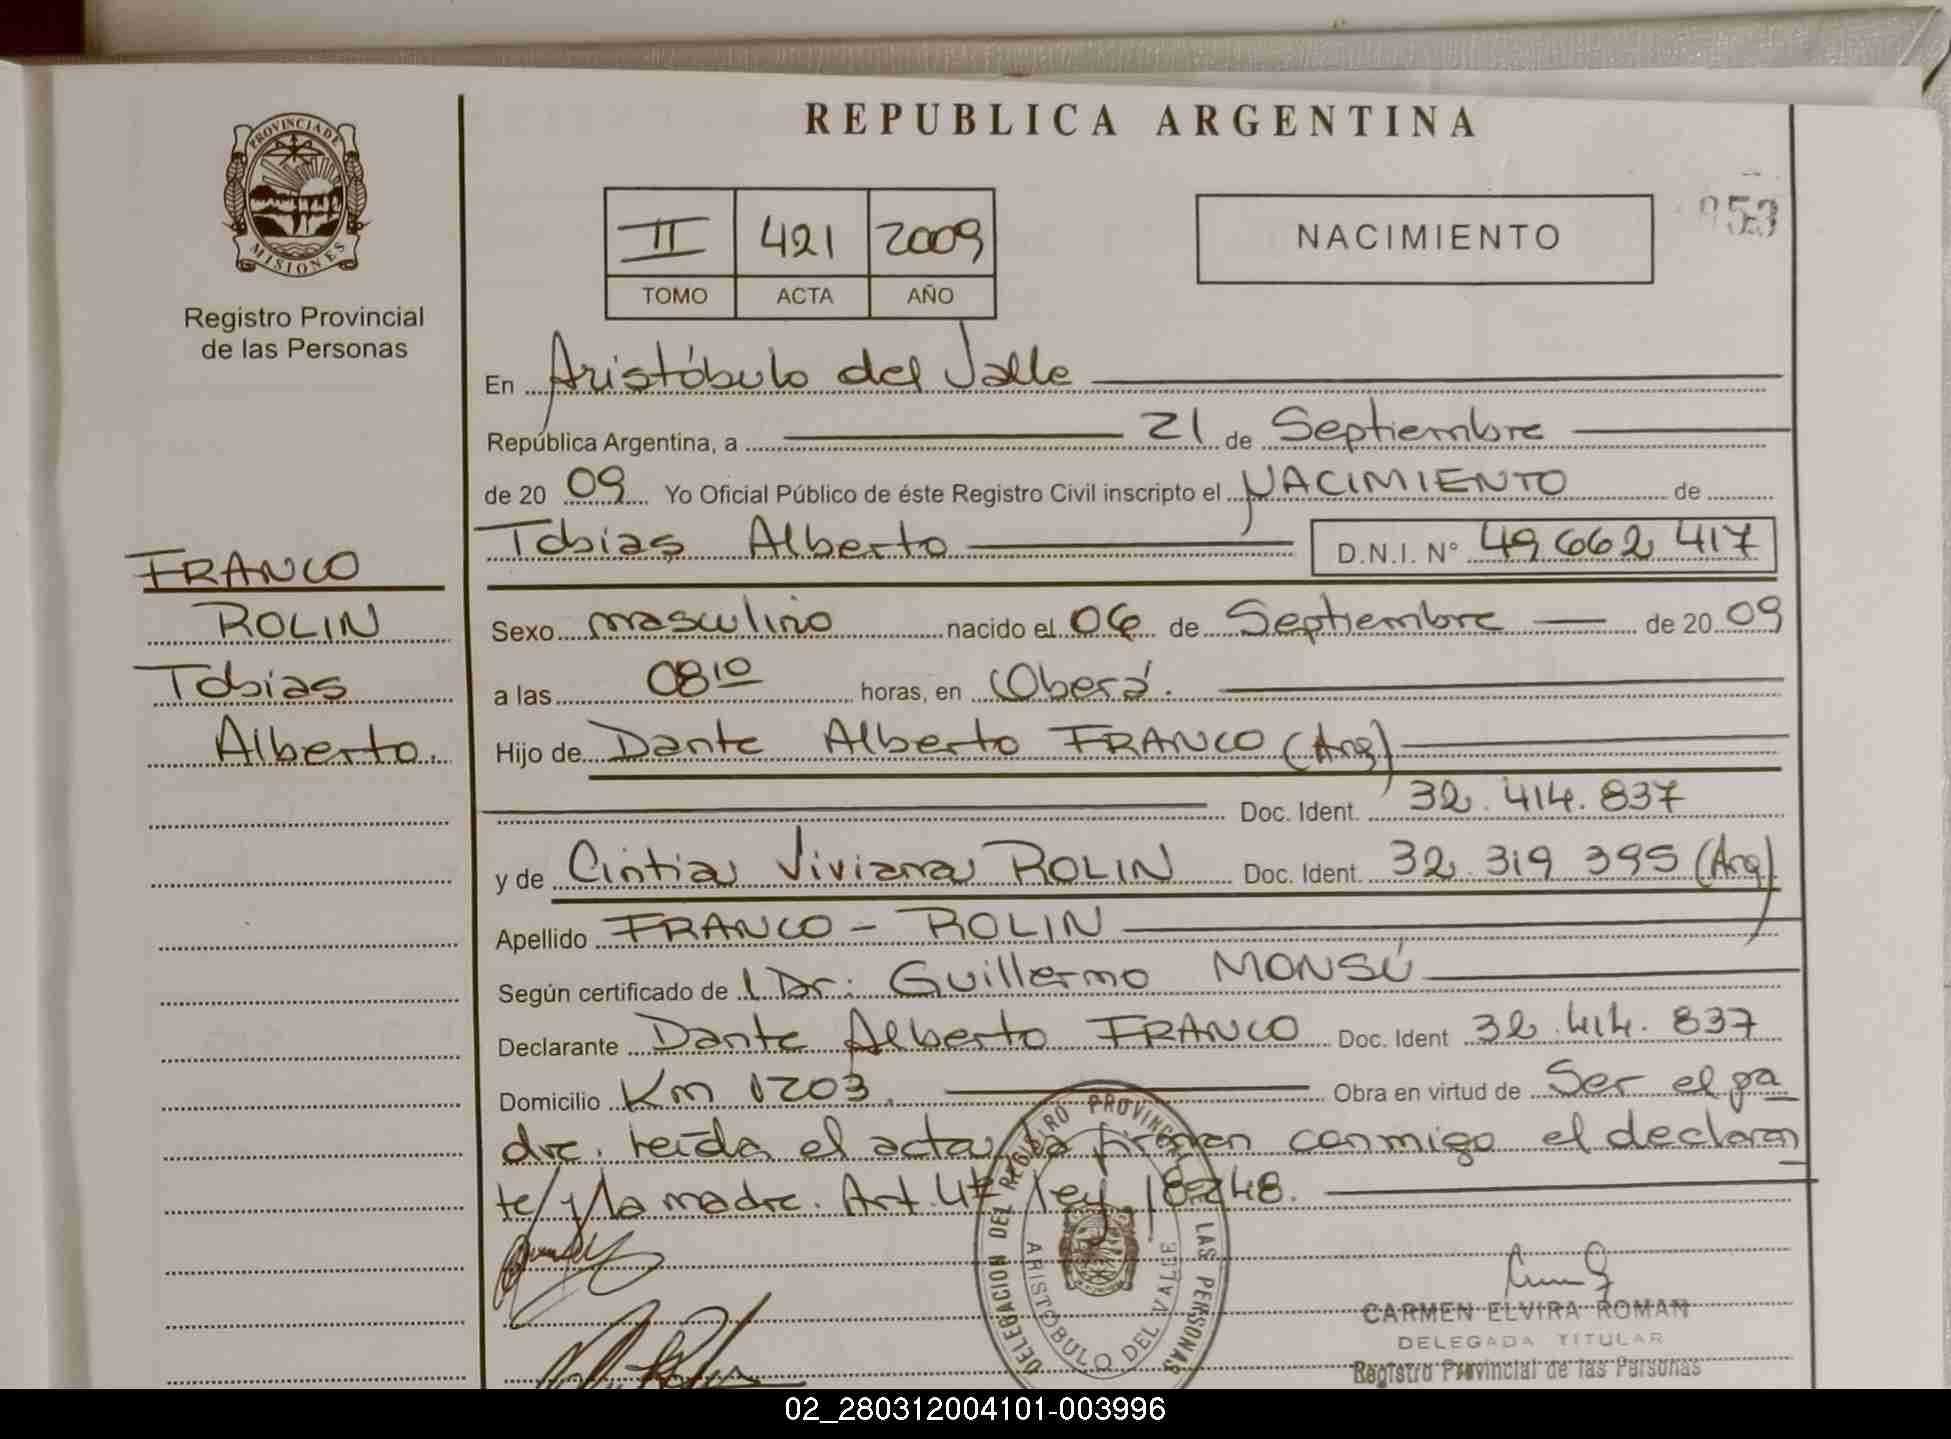 REPUBLICA ARGENTINA
PROVINCIA DE
MISIONES
Registro Provincial
de las Personas
II 421 2009
TOMO ACTA AÑO
NACIMIENTO
953
En Aristóbulo del Valle
República Argentina, a 21 de Septiembre
de 20 09 Yo Oficial Público de éste Registro Civil inscripto el NACIMIENTO de
Tobias Alberto D.N.I. N° 49.662.417
FRANCO
ROLIN
Tobias
Alberto.
Sexo masculino nacido el 06 de Septiembre de 20 09
a las 08 10 horas, en Oberá.
Hijo de Dante Alberto FRANCO (Arg)
Doc. Ident. 32.414.837
y de Cintia Viviana ROLIN Doc. Ident. 32.319.395 (Arg)
Apellido FRANCO - ROLIN
Según certificado de l Dr: Guillermo MONSÚ
Declarante Dante Alberto FRANCO Doc. Ident 32.414.837
Domicilio Km 1203. Obra en virtud de Ser el pa
dre. Leída el acta la firman conmigo el declaran
te/y/la madre. Art. 4º Ley 18248.
DELEGACION DEL REGISTRO PROVINCIAL LAS PERSONAS
ARISTOBULO DEL VALLE
CARMEN ELVIRA ROMAN
DELEGADA TITULAR
Registro Provincial de las Personas
02_280312004101-003996